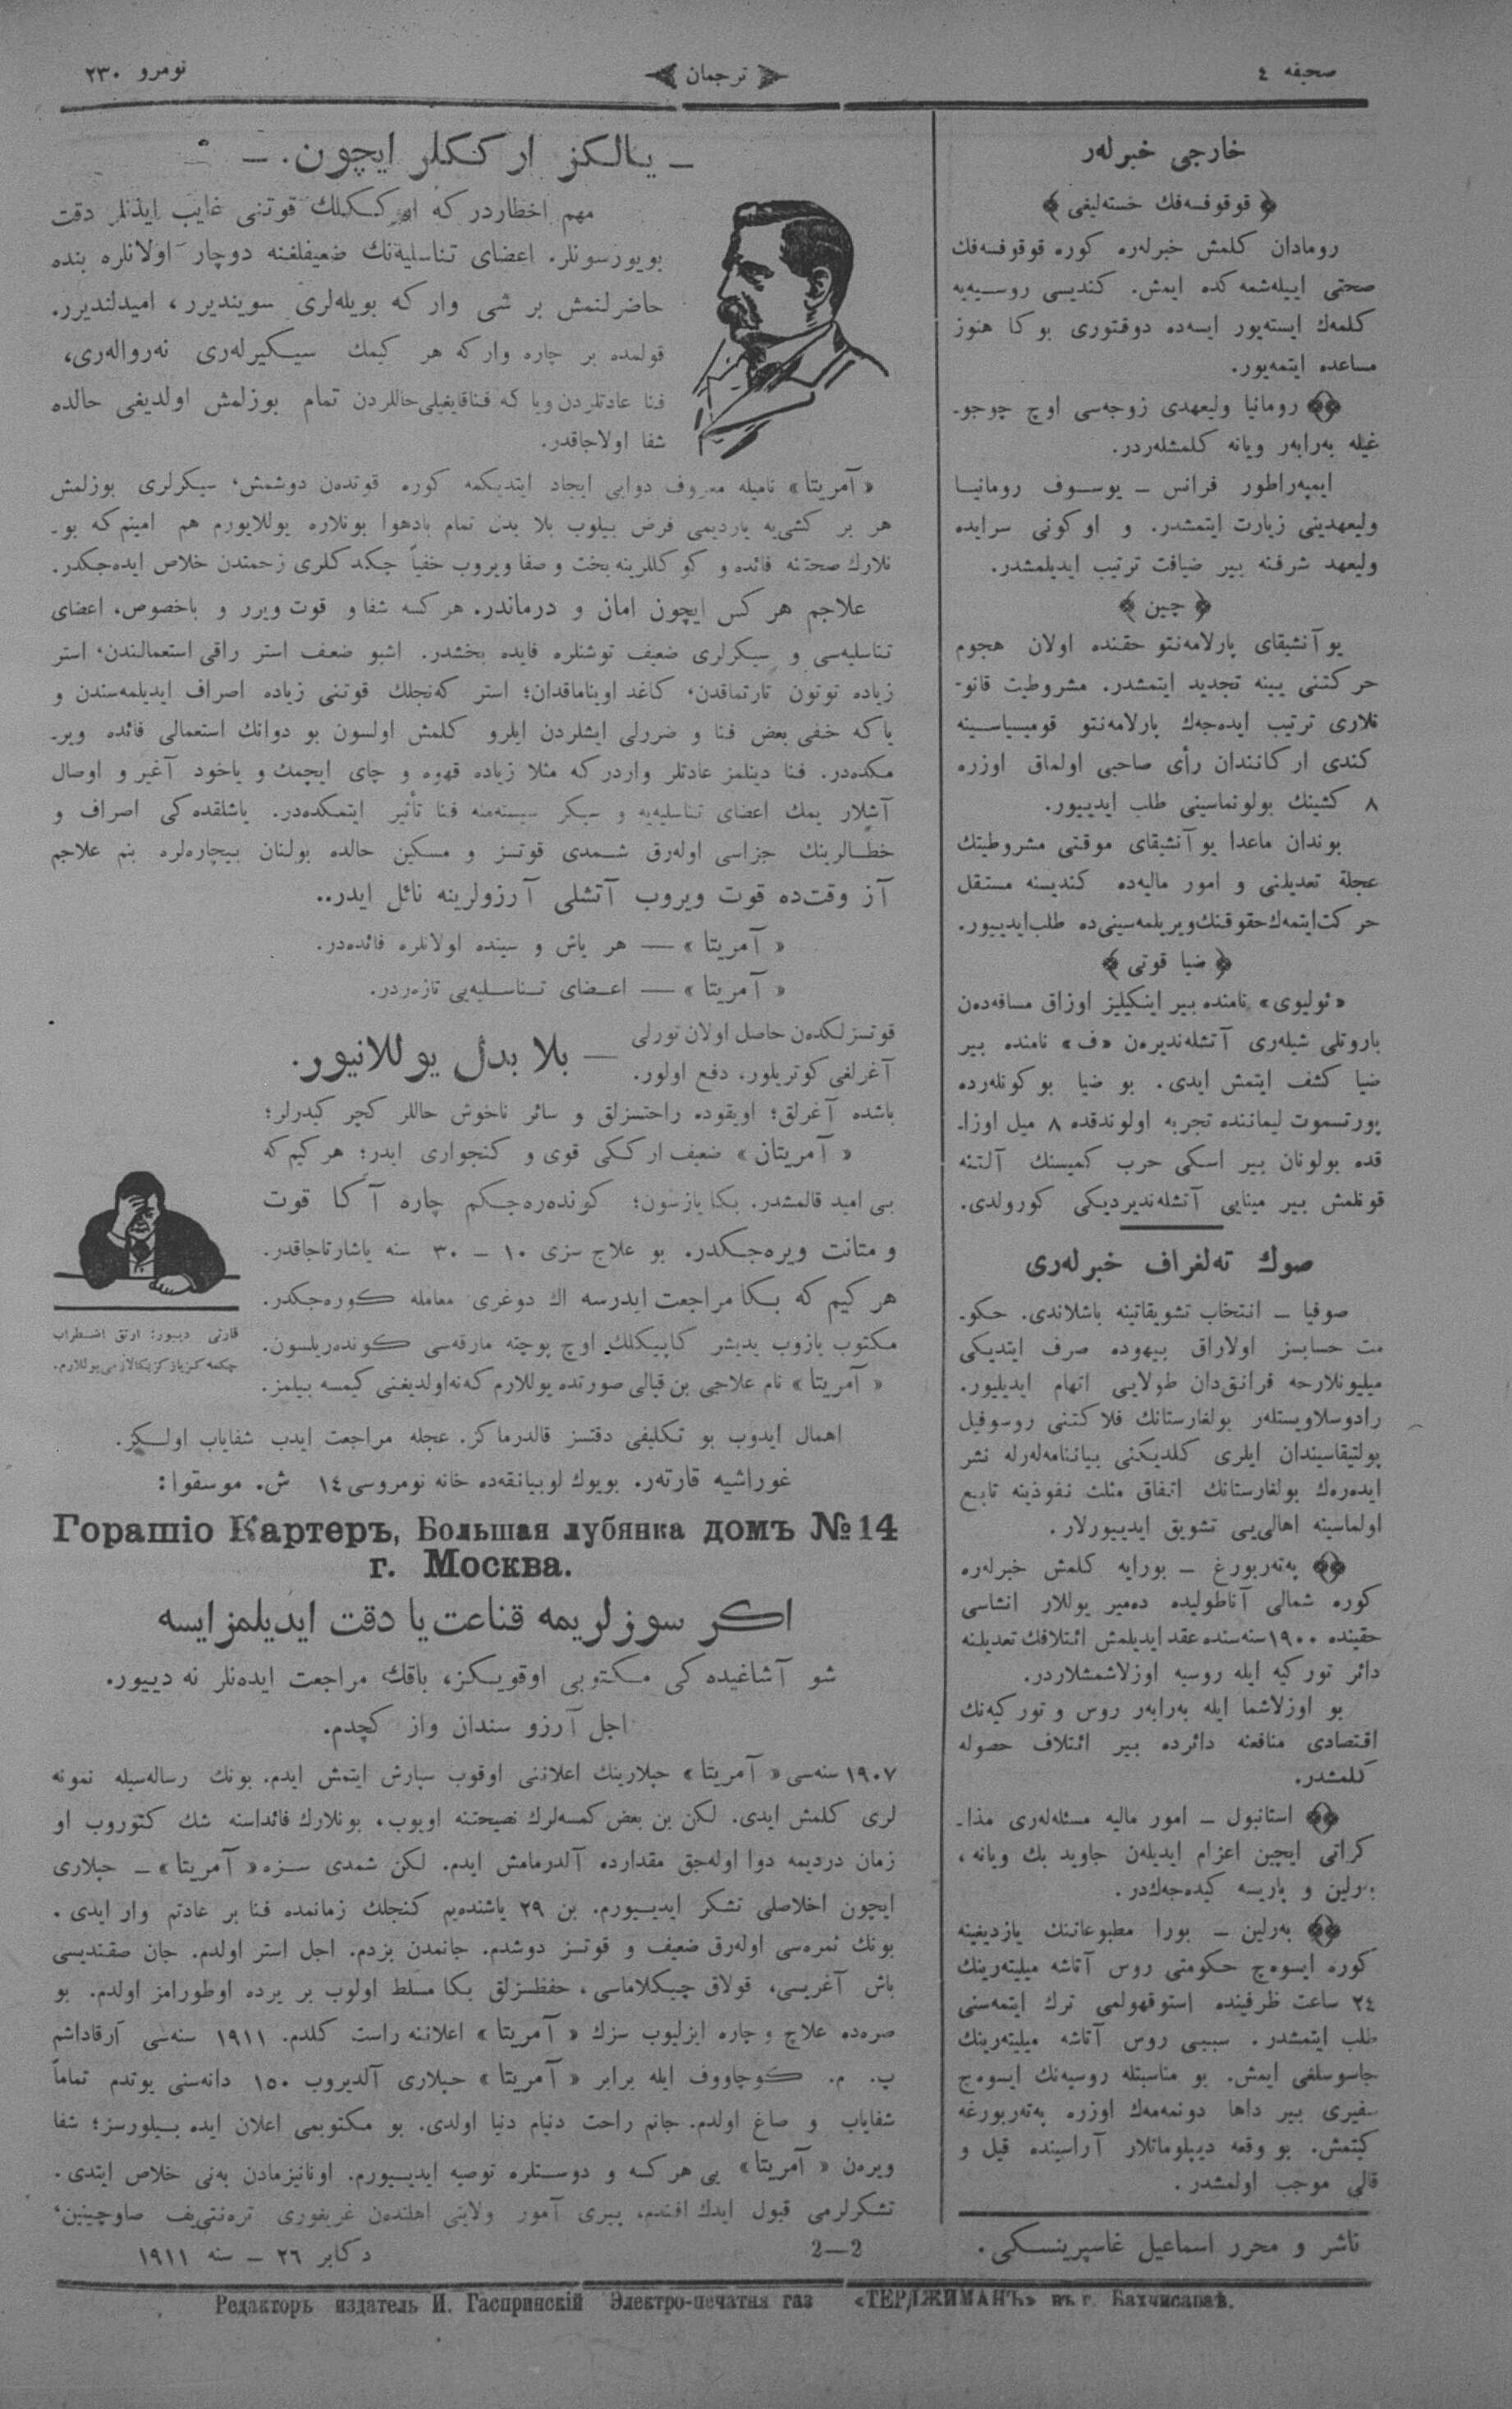 صحیفه ٤
ترجمان
نومرو ٢٣٠
خارجی خبرلەر
﴿ قوقوفسەفك خستەلیغی ﴾
رومادان كلمش خبرلەرە كورە قوقوفسەفك
صحتی اییلەشمەكدە ایمش. كندیسی روسیەیە
كلمەك ایستەیور ایسەدە دوقتوری بوكا هنوز
مساعدە ایتمەیور.
رومانیا ولیعهدی زوجەسی اوچ چوجو-
غیلە بەرابەر ویانە كلمشلەردر.
ایمپەراطور فرانس – یوسوف رومانیا
ولیعهدینی زیارت ایتمشدر. و اوكونی سرایدە
ولیعهد شرفنە بیر ضیافت ترتیب ایدیلمشدر.
﴿ چین ﴾
یوآنشیقای پارلامەنتو حقندە اولان هجوم
حركتنی یینە تجدید ایتمشدر. مشروطیت قانو-
نلاری ترتیب ایدەجەك پارلامەنتو قومیسیاسینە
كندی اركانندان رأی صاحبی اولماق اوزرە
٨ كشینك بولونماسینی طلب ایدییور.
بوندان ماعدا یوآنشیقای موقتی مشروطیتك
عجلة تعدیلنی و امور مالیەدە كندیسنە مستقل
حركت ایتمەك حقوقنك ویریلمەسینی دە طلب ایدییور.
﴿ ضیا قوتی ﴾
«ئولیوی» نامندە بیر اینكیلیز اوزاق مسافەدەن
باروتلی شیلەری آتشلەندیرەن «ف» نامندە بیر
ضیا كشف ایتمش ایدی. بو ضیا بوكونلەردە
پورتسموت لیمانندە تجربە اولوندقدە ٨ میل اوزا-
قدە بولونان بیر اسكی حرب كمیسنك آلتنە
قونلمش بیر مینایی آتشلەندیردیكی كورولدی.
صوك تەلغراف خبرلەری
صوفیا – انتخاب تشویقاتینە باشلاندی. حكو-
مت حسابسز اولاراق بیهودە صرف ایتدیكی
میلیونلارحە فرانق‌دان طولایی اتهام ایدیلیور.
رادوسلاویستلەر بولغارستانك فلاكتنی روسوفیل
پولتیقاسیندان ایلری كلدیكنی بیاننامەلەرلە نشر
ایدەرەك بولغارستانك اتفاق مثلث نفوذینە تابع
اولماسینە اهالی‌یی تشویق ایدییورلار.
پەتەربورغ – بورایە كلمش خبرلەرە
كورە شمالی آناطولیدە دەمیر یوللار انشاسی
حقیندە ١٩٠٠ سنەسندە عقد ایدیلمش ائتلافك تعدیلنە
دائر توركیە ایلە روسیە اوزلاشمشلاردر.
بو اوزلاشما ایلە بەرابەر روس و توركیەنك
اقتصادی منافعنە دائردە بیر ائتلاف حصولە
كلمشدر.
استانبول – امور مالیە مسئلەلەری مذا-
كراتی ایچین اعزام ایدیلەن جاوید بك ویانە،
برلین و پاریسە كیدەجەكدر.
بەرلین – بورا مطبوعاتنك یازدیغینە
كورە ایسوەچ حكومتی روس آتاشە میلیتەرینك
٢٤ ساعت ظرفیندە استوقهولمی ترك ایتمەسنی
طلب ایتمشدر. سببی روس آتاشە میلیتەرینك
جاسوسلغی ایمش. بو مناسبتلە روسیەنك ایسوەچ
سفیری بیر داها دونمەمەك اوزرە پەتەربورغە
كیتمش. بو وقعە دیپلوماتلار آراسیندە قیل و
قالی موجب اولمشدر.
ناشر و محرر اسماعیل غاسپرینسكی.
– یالكز ارككلر ایچون. –
مهم اخطاردر كە ارككلك قوتنی غایب ایدنلر دقت
بویورسونلر. اعضای تناسلیەنك ضعیفلغنە دوچار اولانلرە بندە
حاضرلنمش بر شی واركە بویلەلری سویندیرر، امیدلندیرر.
قولمدە بر چارە واركە هر كیمك سیكیرلەری نەروالەری،
فنا عادتلردن ویا كە فناقایغیلی حاللردن تمام بوزلمش اولدیغی حالدە
شفا اولاجاقدر.
«آمریتا» نامیلە معروف دوایی ایجاد ایتدیكمە كورە قوتدەن دوشمش، سیكرلری بوزلمش
هر بر كشی‌یە یاردیمی فرض بیلوب بلا بدل تمام بادهوا بونلارە یوللایورم هم امینم كە بو-
نلارك صحتنە فائدە و كوكللرینە بخت و صفا ویروب خفیاً چكدكلری زحمتدن خلاص ایدەجكدر.
علاجم هركس ایچون امان و درماندر. هركسە شفا و قوت ویرر و باخصوص. اعضای
تناسلیەسی و سیكرلری ضعیف توشنلرە فایدە بخشدر. اشبو ضعف استر راقی استعمالندن، استر
زیادە توتون تارتماقدن، كاغد اویناماقدان؛ استر كەنجلك قوتنی زیادە اصراف ایدیلمەسندن و
یاكە خفی بعض فنا و ضررلی ایشلردن ایلرو كلمش اولسون بو دوانك استعمالی فائدە ویر-
مكدەدر. فنا دینلمز عادتلر واردركە مثلا زیادە قهوە و چای ایچمك و یاخود آغیر و اوصال
آشلار یمك اعضای تناسلیەیە و سیكر سیستەمنە فنا تأثیر ایتمكدەدر. یاشلقدەكی اصراف و
خطالرینك جزاسی اولەرق شمدی قوتسز و مسكین حالدە بولنان بیچارەلرە بنم علاجم
آز وقت‌دە قوت ویروب آتشلی آرزولرینە نائل ایدر..
« آمریتا » — هر یاش و سیندە اولانلرە فائدەدر.
« آمریتا » — اعضای تناسلیەیی تازەردر.
قوتسزلكدەن حاصل اولان تورلی
آغرلغی كوتریلور. دفع اولور.
— بلا بدل یوللانیور.
باشدە آغرلق؛ اویقودە راحتسزلق و سائر ناخوش حاللر كچر كیدرلر؛
« آمریتان » ضعیف ارككی قوی و كنجواری ایدر؛ هركیم كە
بی امید قالمشدر. بكا یازسون؛ كوندەرەجكم چارە آكا قوت
و متانت ویرەجكدر. بو علاج سزی ١٠ – ٣٠ سنە یاشارتاجاقدر.
هركیم كە بكا مراجعت ایدرسە اك دوغری معاملە كورەجكدر.
مكتوب یازوب یدیشر كاپیكلك اوچ پوچتە مارقەسی كوندەریلسون.
« آمریتا » نام علاجی بن قبالی صورتدە یوللارم كە نە اولدیغنی كیمسە بیلمز.
قارئی دییور: ارتق اضطراب
اهمال ایدوب بو تكلیفی دقتسز قالدرماكز. عجلە مراجعت ایدب شفایاب اولكز.
غوراشیە قارتەر. بویوك لوبیانقەدە خانە نومروسی ١٤ ش. موسقوا:
Горашіо Картеръ, Большая лубянка домъ № 14
г. Москва.
اكر سوزلریمە قناعت یا دقت ایدیلمزایسە
شو آشاغیدەكی مكتوبی اوقویكز، باقك مراجعت ایدەنلر نە دییور.
اجل آرزو سندان واز كچدم.
١٩٠٧ سنەسی « آمریتا » حبلارینك اعلاننی اوقوب سپارش ایتمش ایدم. بونك رسالەسیلە نمونە
لری كلمش ایدی. لكن بن بعض كمسەلرك نصیحتنە اویوب، بونلارك فائداسنە شك كتوروب او
زمان دردیمە دوا اولەجق مقداردە آلدرمامش ایدم. لكن شمدی سزە « آمریتا » – حبلاری
ایچون اخلاصلی تشكر ایدییورم. بن ٢٩ یاشندەیم كنجلك زمانمدە فنا بر عادتم وار ایدی.
بونك ثمرەسی اولەرق ضعیف و قوتسز دوشدم. جانمدن بزدم. اجل استر اولدم. جان صقندیسی
باش آغریسی، قولاق چیكلاماسی، حفظسزلق بكا مسلط اولوب بر یردە اوطورامز اولدم. بو
صرەدە علاج و چارە ایزلیوب سزك « آمریتا » اعلاننە راست كلدم. ١٩١١ سنەسی آرقاداشم
پ. م. كوچاووف ایلە برابر « آمریتا » حبلاری آلدیروب ١٥٠ دانەسنی یوتدم تماماً
شفایاب و صاغ اولدم. جانم راحت دنیام دنیا اولدی. بو مكتوبمی اعلان ایدە بیلورسز؛ شفا
ویرەن « آمریتا » یی هركسە و دوستلرە توصیە ایدییورم. اونانیزمادن بەنی خلاص ایتدی.
تشكرلرمی قبول ایدك افندم. ییری آمور ولایتی اهلندەن غریغوری تەرەنتییف صاوچینین،
دكابر ٢٦ – سنە ١٩١١
2—2
Редакторъ издатель И. Гаспринскій Электро-печатня газ «ТЕРДЖИМАНЪ» въ г. Бахчисараѣ.